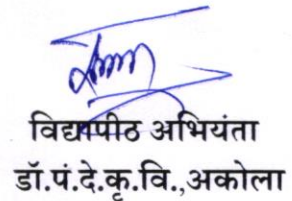 विद्यापीठ अभियंता
डॉ.पं.दे.कृ.वि.,अकोला